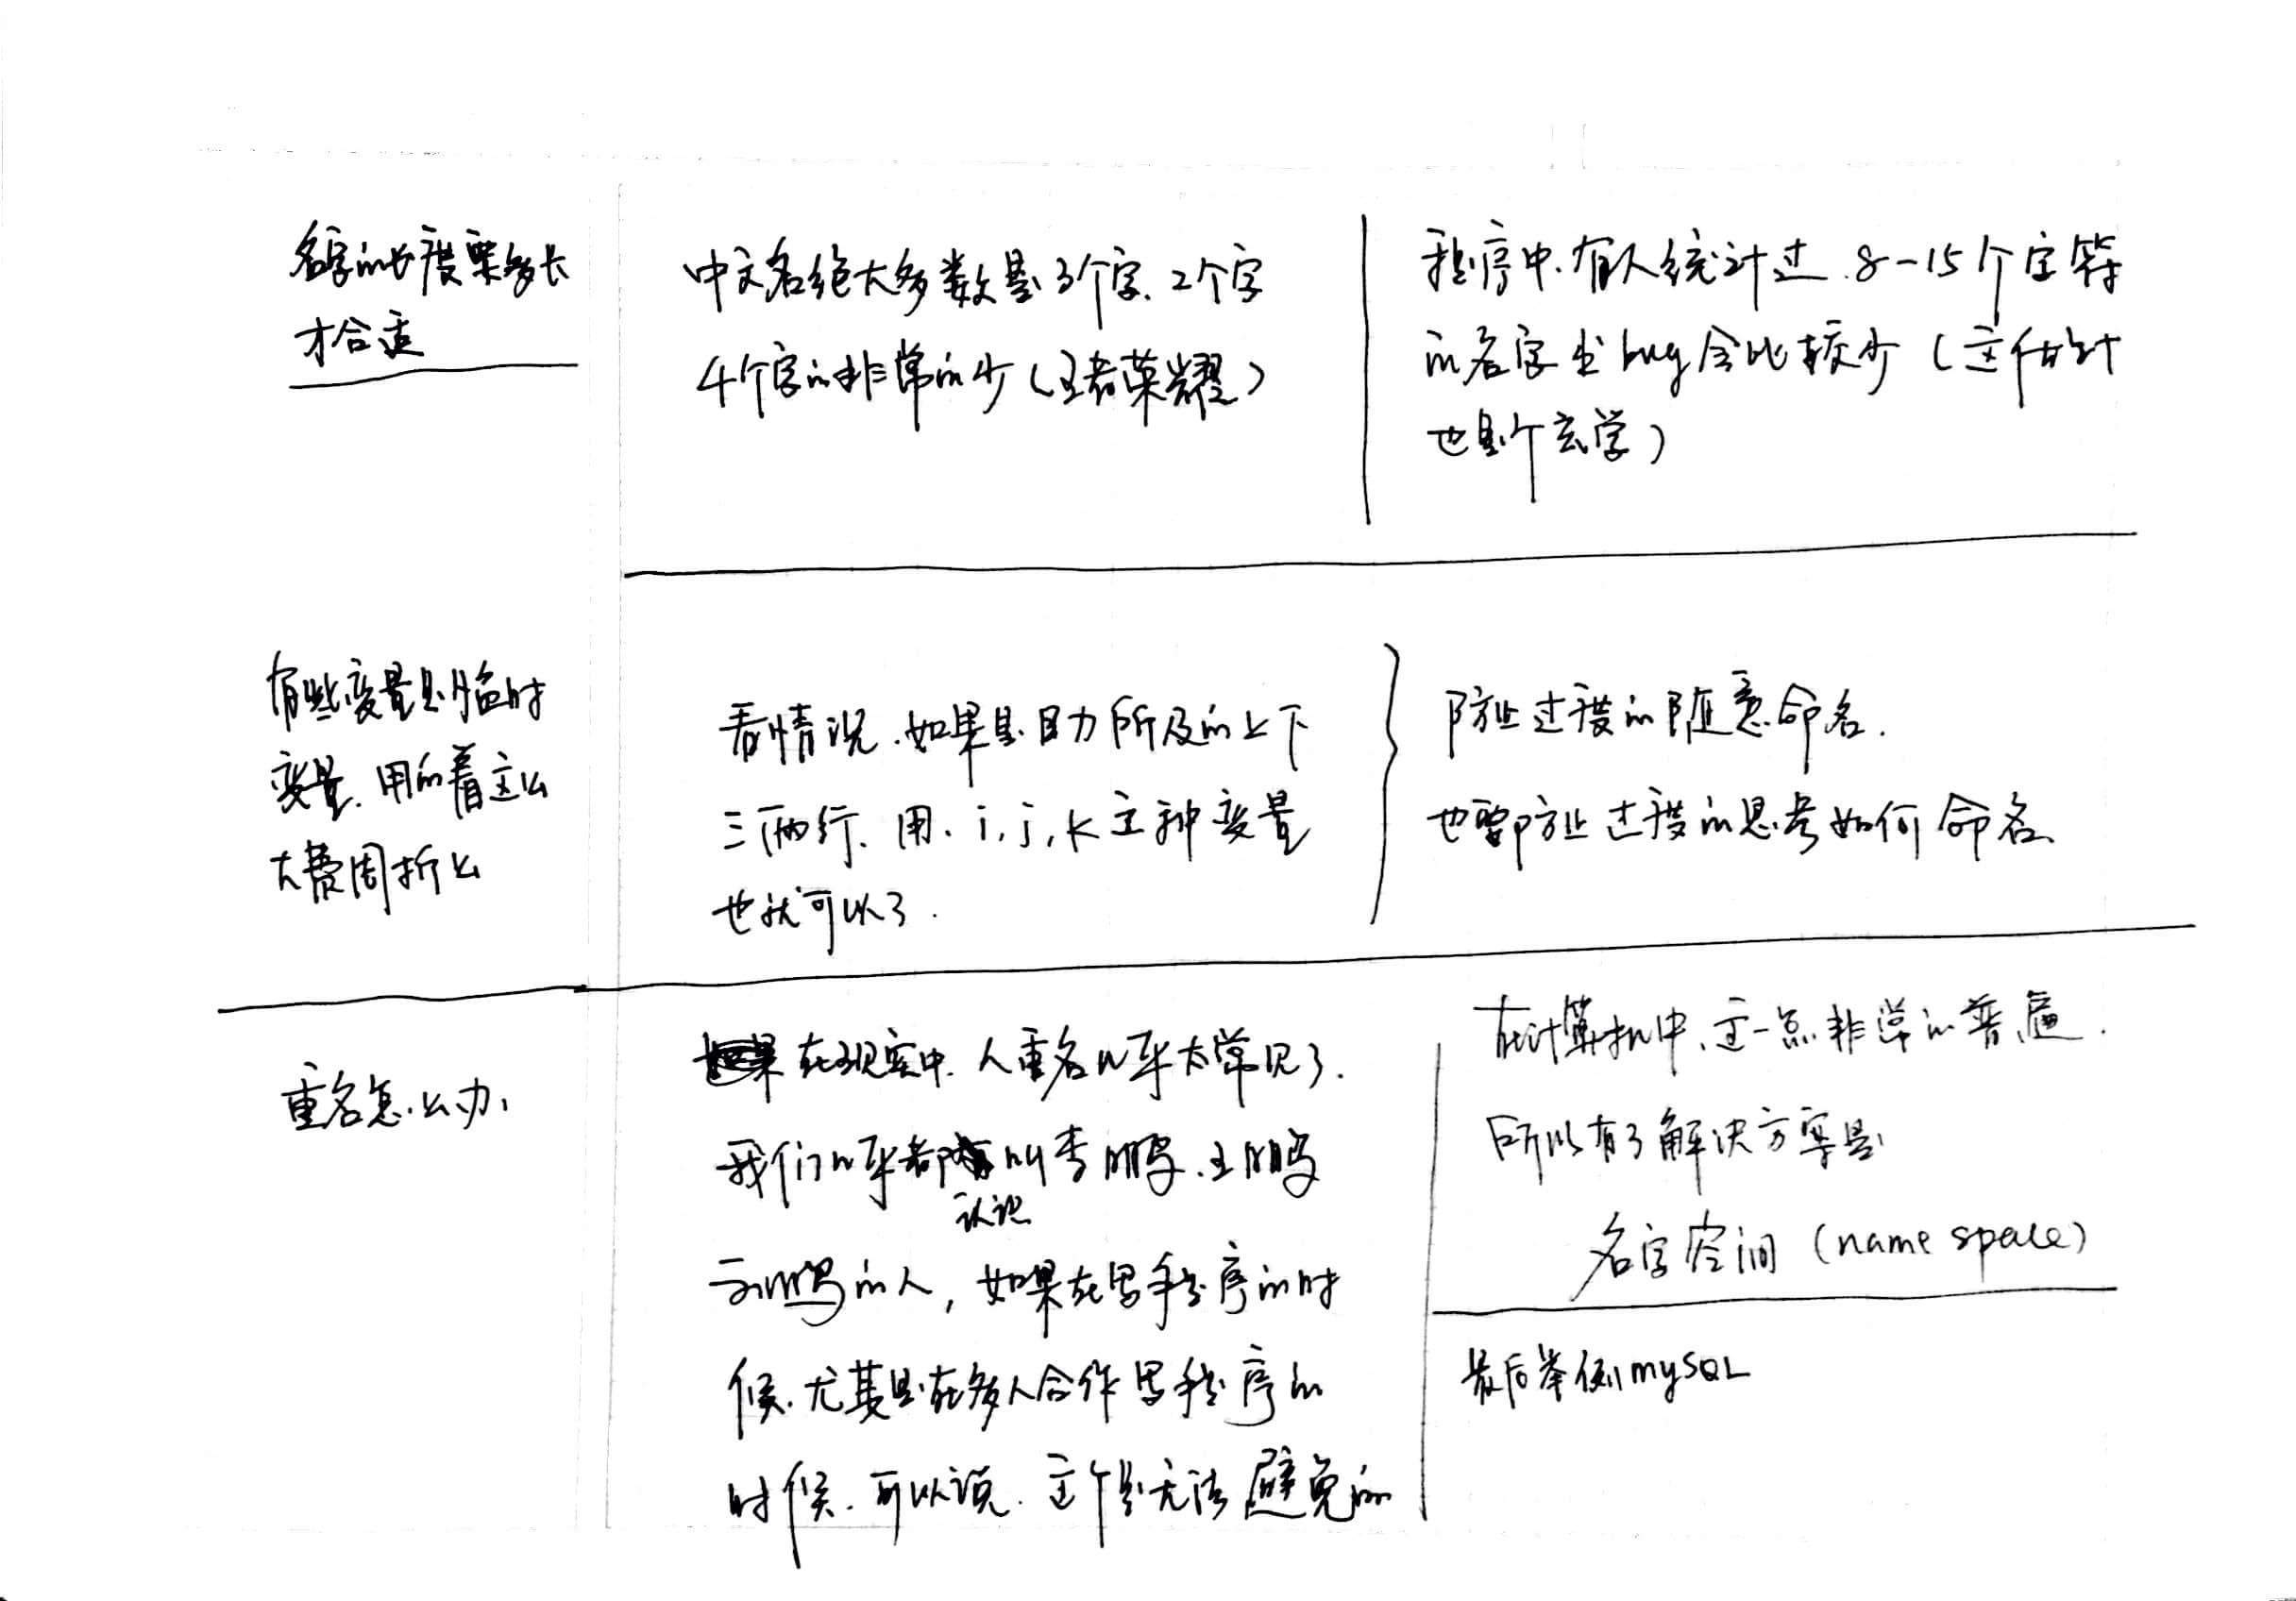 名字的长度要多长
才合适
中文名绝大多数是3个字、2个字
4个字的非常的少(王者荣耀)
程序中.有人统计过.8-15个字符
的名字出bug会比较少(这
也是个玄学)
有些变量是临时
变量.用的着这么
大费周折么
看情况.如果是目力所及的上下
三两行.用.i,j,k这种变量
也就可以了.
防止过度的随意命名.
也要防止过度的思考如何命名.
重名怎么办
在现实中.人重名几乎太常见了.
我们几乎都认识叫李鹏.王鹏
刘鹏的人,如果在写程序的时
候.尤其是在多人合作写程序的
时候.可以说.这个是无法避免的
在计算机中、这一点非常的普遍.
所以有了解决方案是
名字空间(name space)
最后举例mySQL